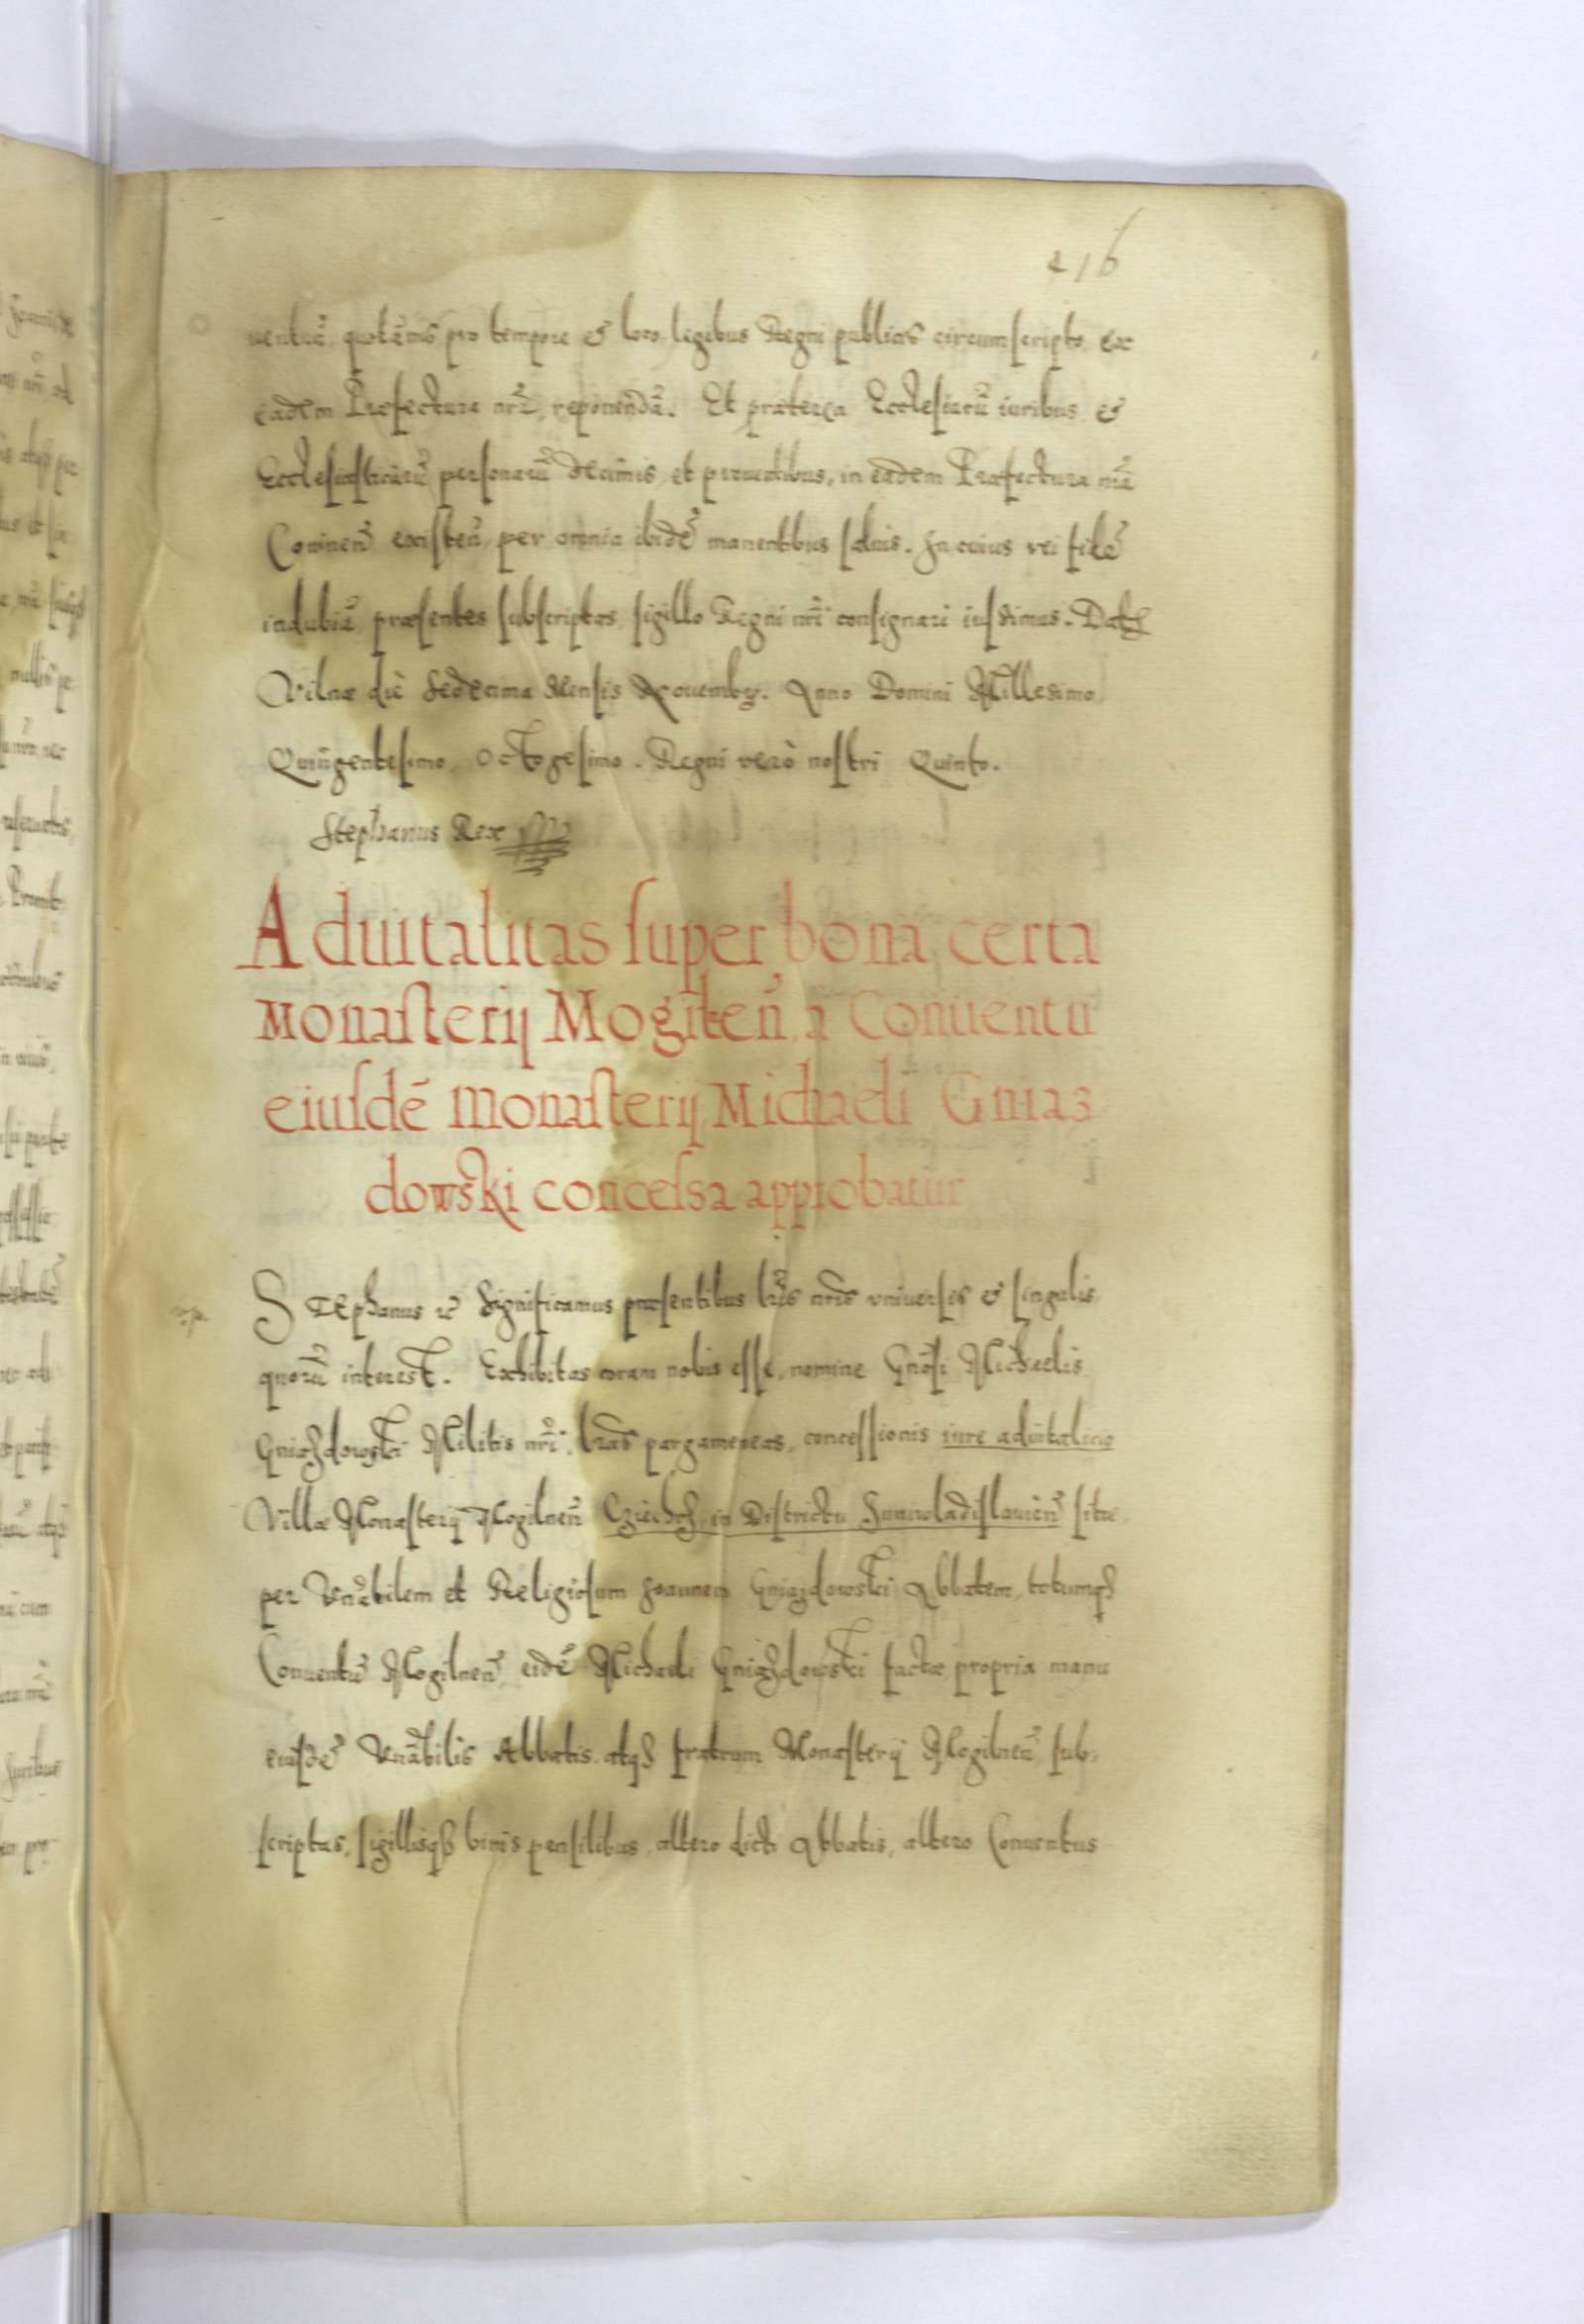 216
uentuũ quotãnis pro tempore et loco legibus Regni publicis circumscripto ex
eadem Præfectura nrã reponendã. Et præterea Ecclesiarũ iuribus et
Ecclesiasticarũ personarũ decimis et prouentibus, in eadem Præfectura nrã
Coninen̄ existen̄ per omnia ibidē manentibus saluis. In cuius rei fidē
indubiã præsentes subscriptas sigillo Regni nrĩ consignari iussimus. Datū
Vilnæ diè sedecima Mensis Nouembrꝫ. Anno Domini Millesimo
Quingentesimo Octogesimo. Regni verò nostri Quinto.
Stephanus Rex
Aduitalitas super bona certa
Monasterij Mogilen̄ a Conuentu
eiusdē Monasterij Michaeli Gnias
dowski concessa approbatur
Stephanus ꝛc̄ Significamus præsentibus lrĩs nrĩs vniuersis et singulis
quorũ interest. Exhibitas coram nobis esse nomine Gnõsi Michaelis
Gniazdowski Militis nrĩ, lrãs pargameneas, concessionis iure aduitalicio
Villæ Monasterij Mogilnen̄ in Districtu Juniuladislauien̄ sitæ
per Vnãbilem et Religiosum Joannem Gniazdowski Abbatem, totumqꝫ
Conuentũ Mogilnen̄ eidē Michaeli Gniazdowski factæ propria manu
eiusdē Vnãbilis Abbatis atqꝫ fratrum Monasterij Mogilnen̄ sub-
scriptas, sigillisqꝫ binis pensilibus, altero dicti Abbatis, altero Conuentus